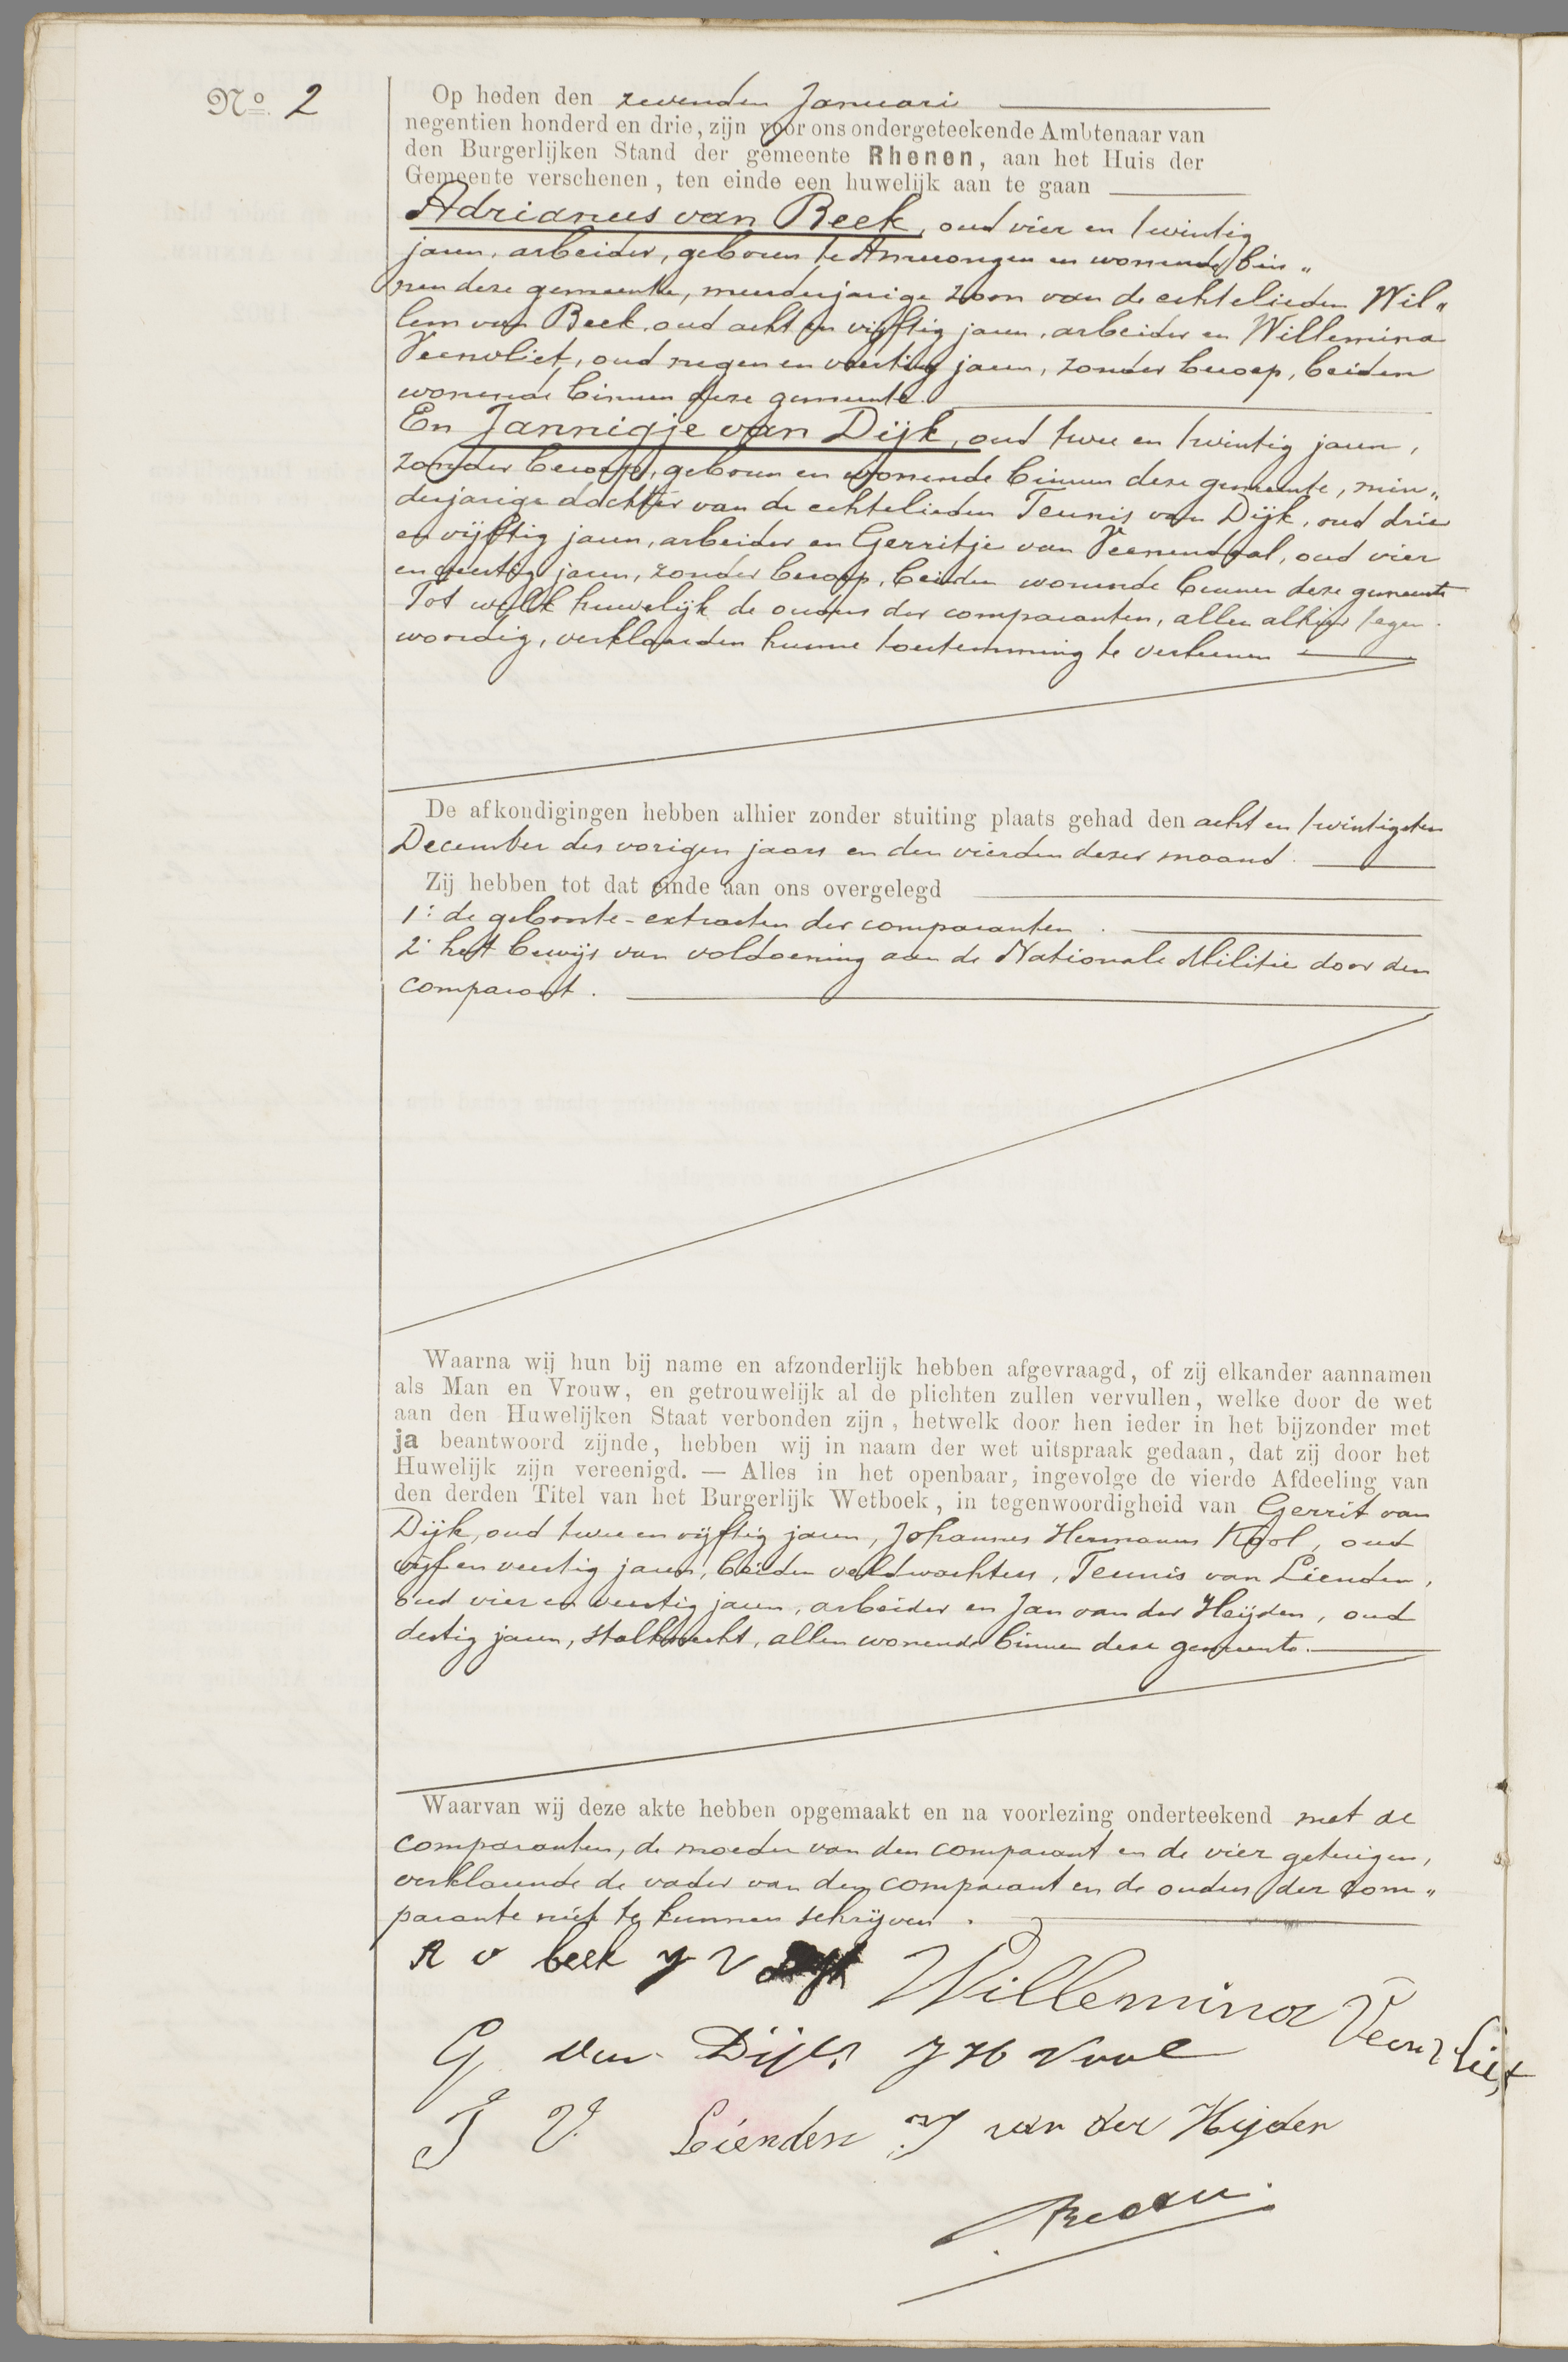 No. 2
Op heden den zevenden Januari
negentien honderd en drie, zijn voor ons ondergeteekende Ambtenaar van
den Burgerlijken Stand der gemeente Rhenen, aan het Huis der
Gemeente verschenen, ten einde een huwelijk aan te gaan
Adrianus van Beek, oud vier en twintig
jaren, arbeider, geboren te Amerongen en wonende bin„
nen deze gemeente, meerderjarige zoon van de echtelieden Wil„
lem van Beek, oud acht en vijftig jaren, arbeider en Willemina
Veenvliet, oud negen en veertig jaren, zonder beroep, beiden
wonende binnen deze gemeente.
En Jannigje van Dijk, oud twee en twintig jaren,
zonder beroep, geboren en wonende binnen deze gemeente, min„
derjarige dochter van de echtelieden Teunis van Dijk, oud drie
en vijftig jaren, arbeider en Gerritje van Veenendaal, oud vier
en veertig jaren, zonder beroep, beiden wonende binnen deze gemeente
Tot welk huwelijk de ouders der comparanten, allen alhier tegen
woordig, verklaarden hunne toestemming te verleenen
De afkondigingen hebben alhier zonder stuiting plaats gehad den acht en twintigsten
December des vorigen jaars en den vierden dezer maand.
Zij hebben tot dat einde aan ons overgelegd
1: de geboorte-extracten der comparanten.
2: het bewijs van voldoening aan de Nationale Militie door den
comparant.
Waarna wij hun bij name en afzonderlijk hebben afgevraagd, of zij elkander aannamen
als Man en Vrouw, en getrouwelijk al de plichten zullen vervullen, welke door de wet
aan den Huwelijken Staat verbonden zijn, hetwelk door hen ieder in het bijzonder met
ja beantwoord zijnde, hebben wij in naam der wet uitspraak gedaan, dat zij door het
Huwelijk zijn vereenigd. — Alles in het openbaar, ingevolge de vierde Afdeeling van
den derden Titel van het Burgerlijk Wetboek, in tegenwoordigheid van Gerrit van
Dijk, oud twee en vijftig jaren, Johannes Hermanus Kool, oud
vijf en veertig jaren, beiden veldwachters, Teunis van Lienden,
oud vier en veertig jaren, arbeider en Jan van der Heijden, oud
dertig jaren, stalknecht, allen wonende binnen deze gemeente.
Waarvan wij deze akte hebben opgemaakt en na voorlezing onderteekend met de
comparanten, de moeder van den comparant en de vier getuigen,
verklarende de vader van den comparant en de ouders der com„
parante niet te kunnen schrijven.
A v beek J V Willemina Veenvliet
G van Dijk J H Kool
T V. Lienden J van der Heijden